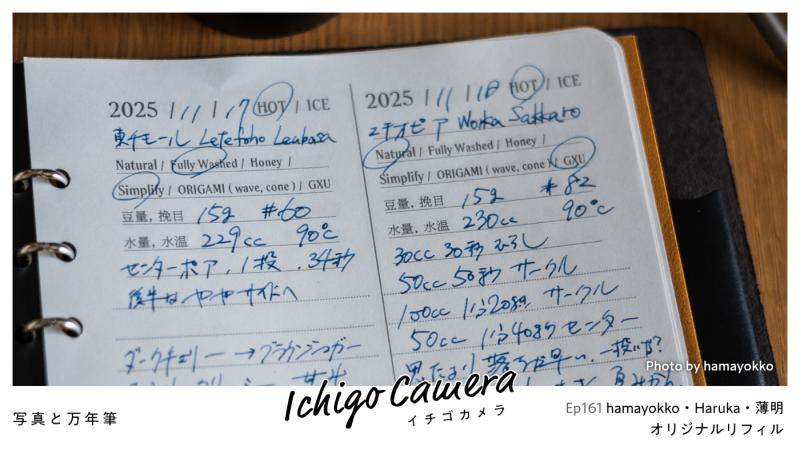 2025 / 11 / 17 HOT / ICE
東チモール Letefoho Leubasa
Natural / Fully Washed / Honey /
Simplify / ORIGAMI ( wave, cone ) / GXU
豆量, 挽目 15g #60
水量, 水温 229cc 90℃
センターポア, 1投, 34秒
後半は ややサイドへ
ダークチェリー → ブラウンシュガー
2025 / 11 / 18 HOT / ICE
エチオピア Worka Sakkaro
Natural / Fully Washed / Honey /
Simplify / ORIGAMI ( wave, cone ) / GXU
豆量, 挽目 15g #82
水量, 水温 230cc 90℃
30cc 30秒 むらし
50cc 50秒 サークル
100cc 1分20秒 サークル
50cc 1分40秒 センター
思ったより 落ちが早い. 一投いが?
Photo by hamayokko
写真と万年筆
Ichigo Camera
イチゴカメラ
Ep161 hamayokko・Haruka・薄明
オリジナルリフィル